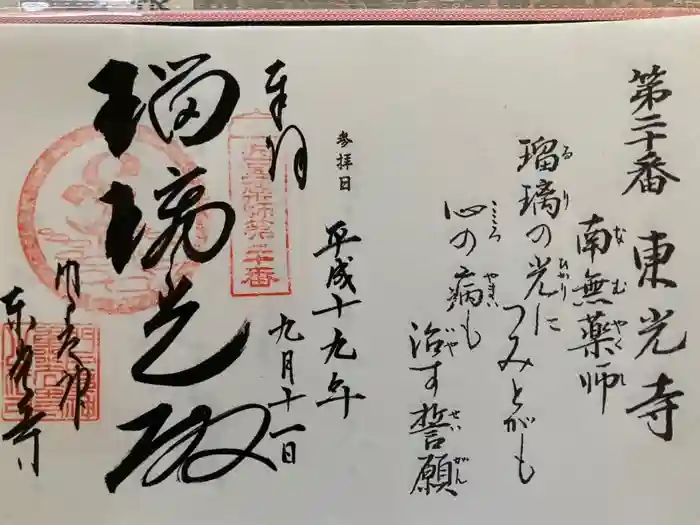 第二十番 東光寺
南無薬師
瑠璃の光に
つみとがも
心の病も
治す誓願
参拝日
平成十九年
九月十一日
奉拝
瑠璃光殿
東光寺